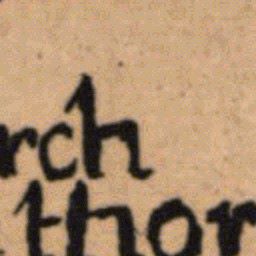 rch
thor